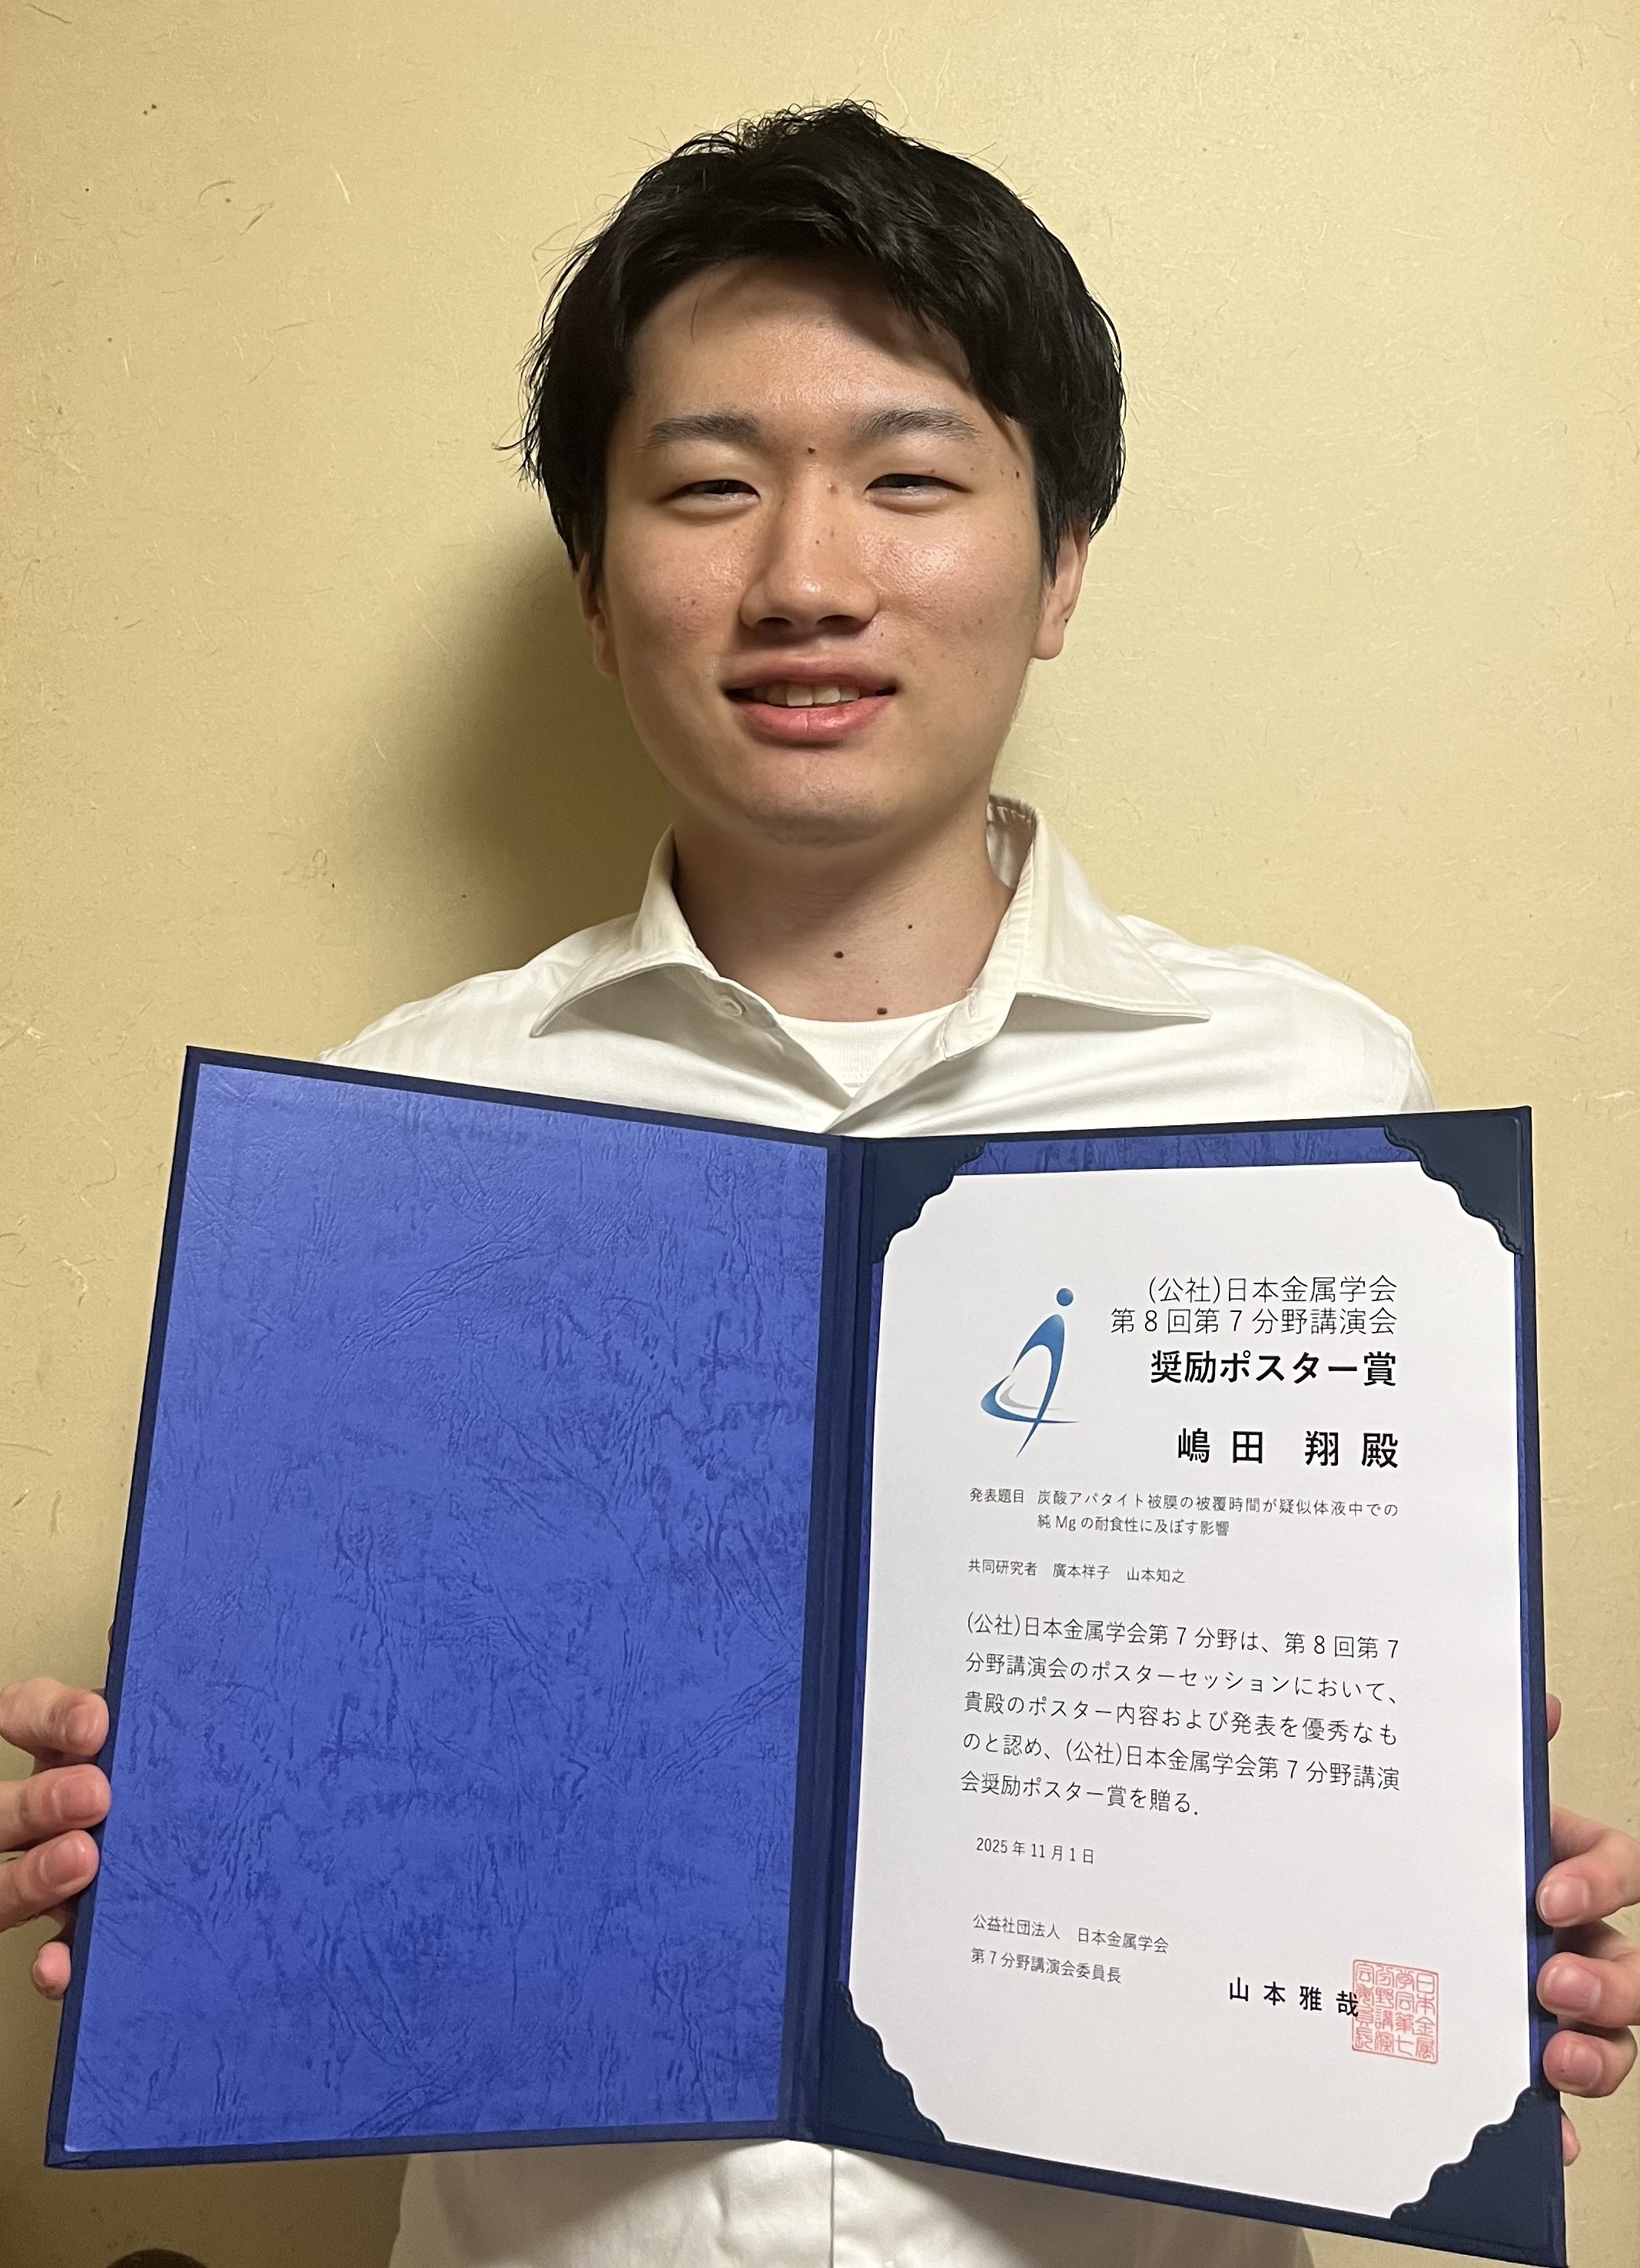 (公社)日本金属学会
第8回第7分野講演会
奨励ポスター賞
嶋田 翔 殿
発表題目 炭酸アパタイト被膜の被覆時間が疑似体液中での
純Mgの耐食性に及ぼす影響
共同研究者 廣本祥子 山本知之
(公社)日本金属学会第7分野は、第8回第7
分野講演会のポスターセッションにおいて、
貴殿のポスター内容および発表を優秀なも
のと認め、(公社)日本金属学会第7分野講演
会奨励ポスター賞を贈る.
2025年11月1日
公益社団法人 日本金属学会
第7分野講演会委員長
山本雅哉
日本金属
学会第七
分野講演
会委員長